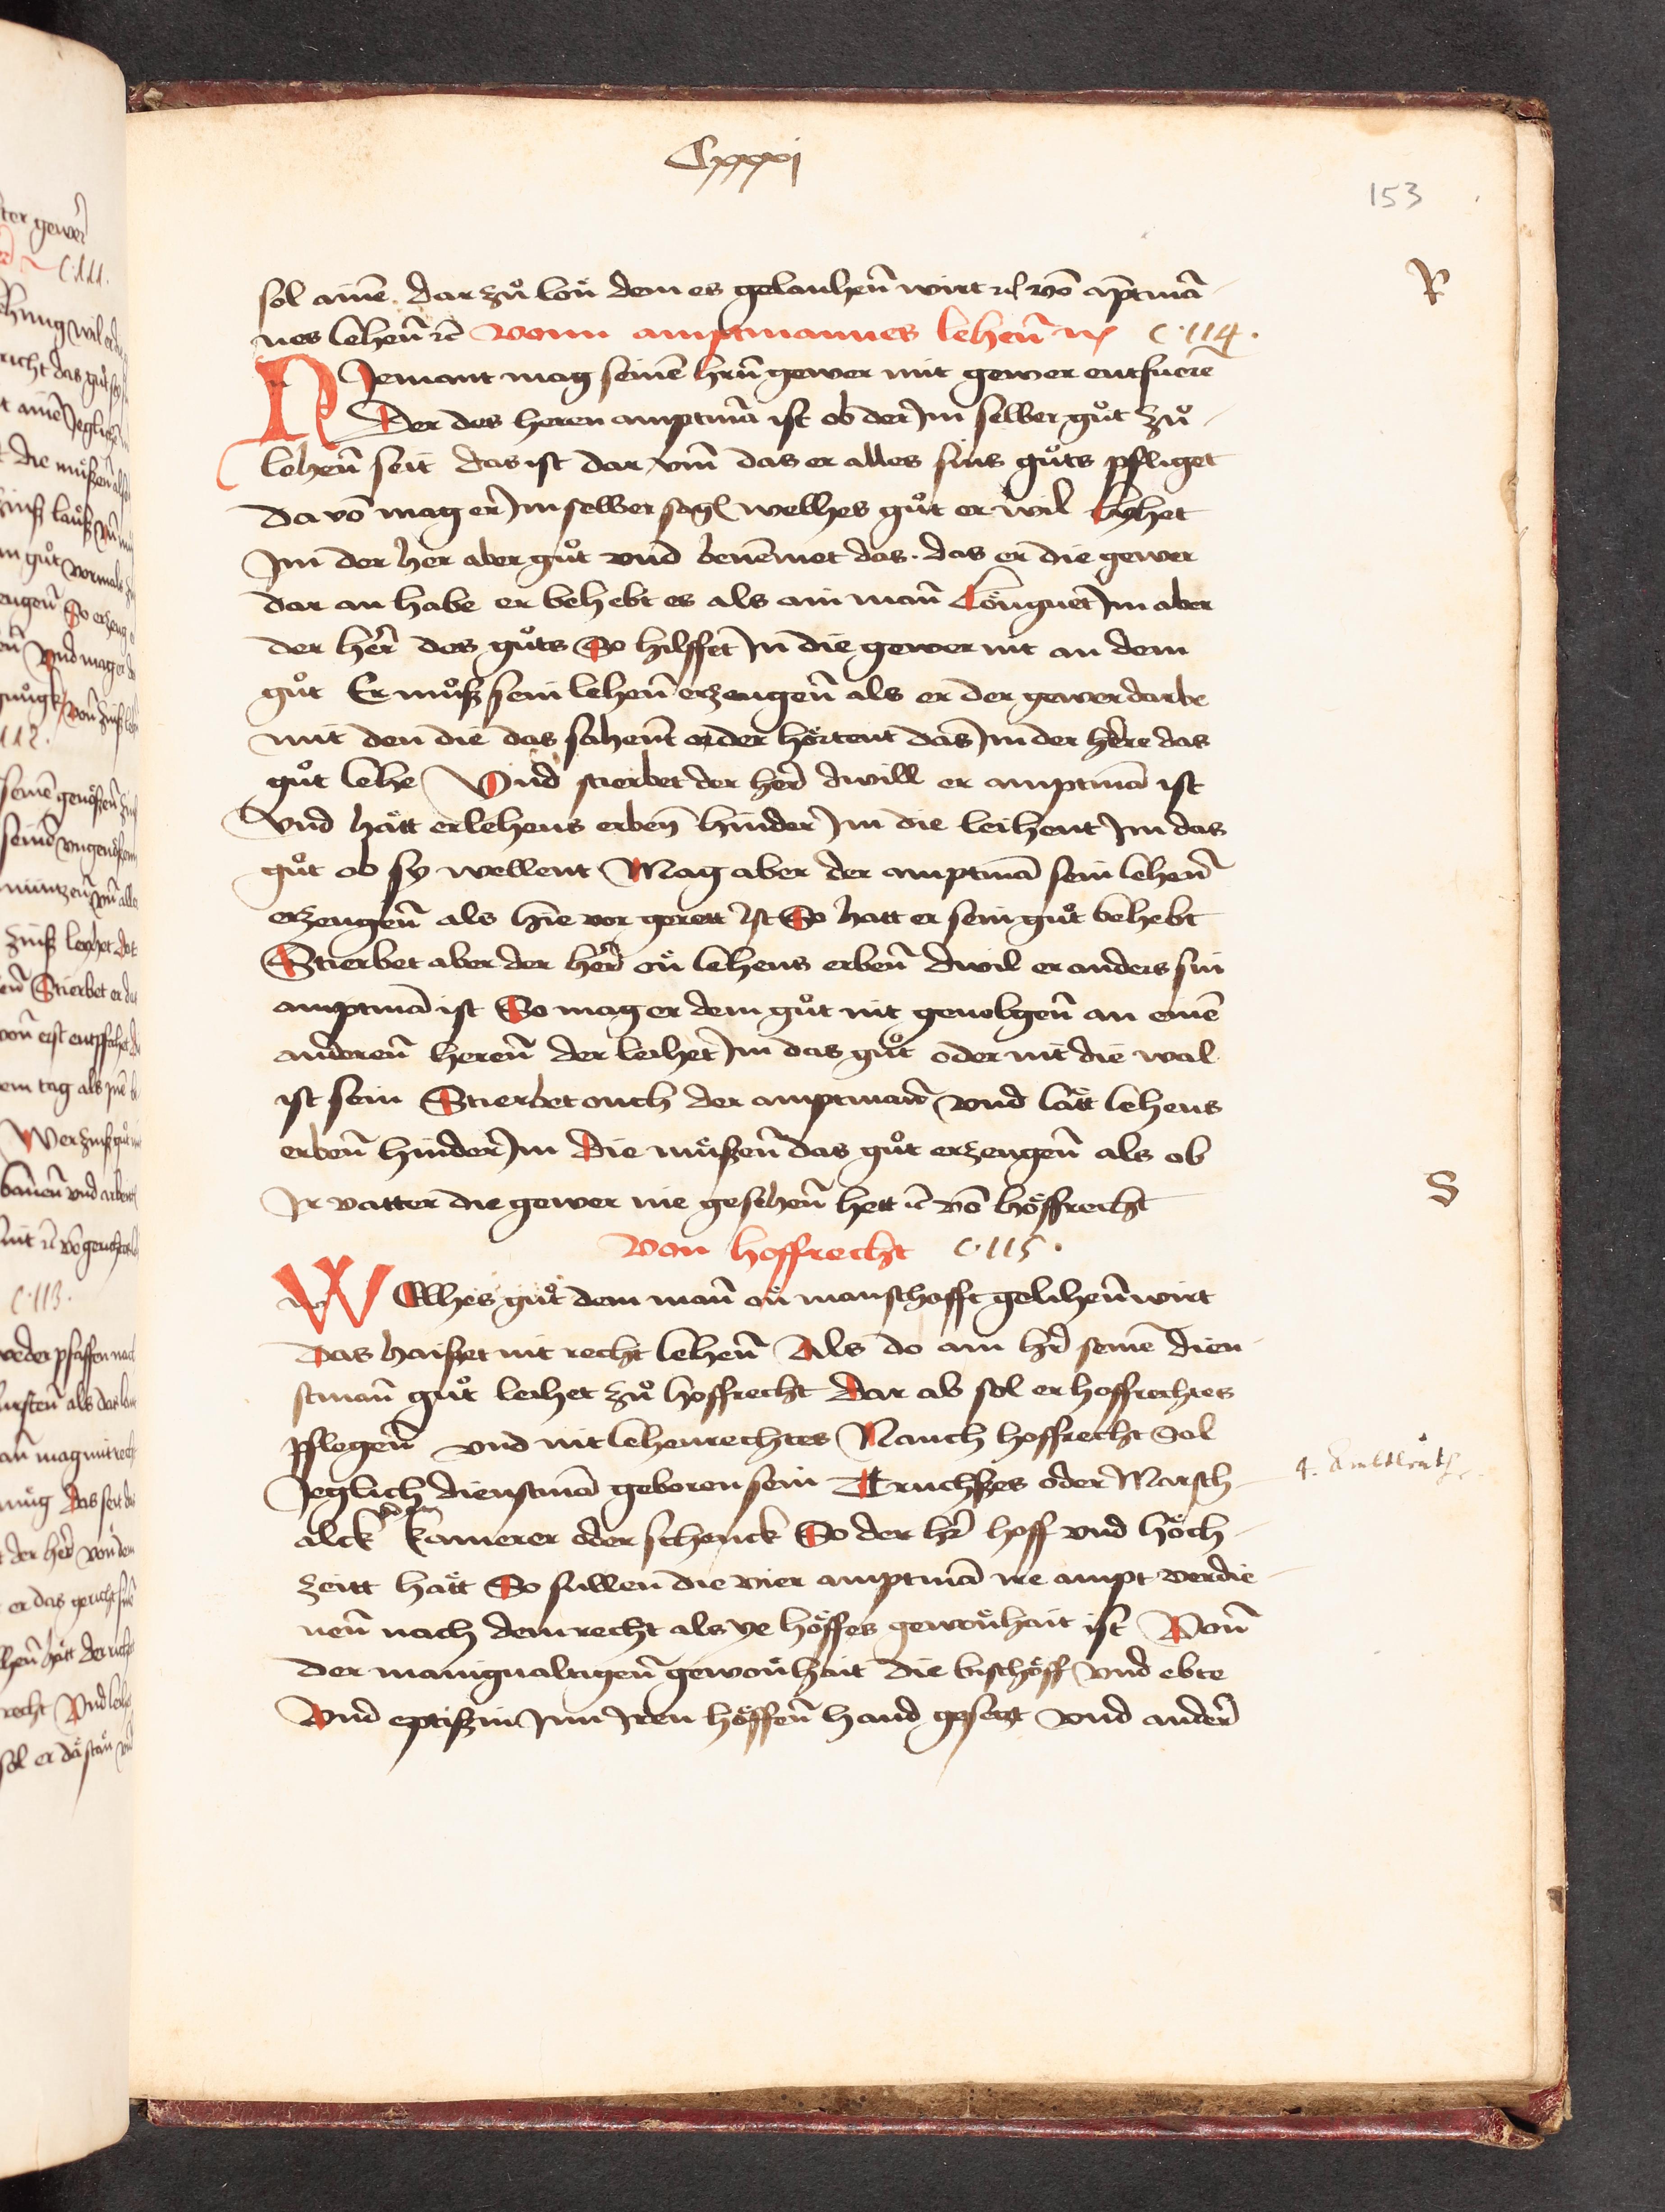 Cxxxi
153
sol ainē dar zů lon̄ dem es gelauhen̄ wirt ꝛc vō aptmā
R
nes lehen̄ ꝛc vonn amptmannes lehen̄ ꝛc C.114.
NJemant mag seinē hrn̄ gewer mit gewer entfuerē
Der des heren amptmā ist ob der Jm selber gůt zů
lehen̄ seit das ist dar vm̄ das er alles sins gůts pfliget
da vō mag er Jm selber sagē welhes gůt er wil Lyhet
Jm der her aber gůt vnd benēmet das. das er die gewer
dar an habe er behebt es als ain man̄ Löugnet Jm aber
der her̄ des gůts So hilffet Jn die gewer nit an dem
gůt Er můß sein lehen̄ erzeugen̄ als er der gewer darbe
mit den die das sahent̄ oder hörtent das Jm der here das
gůt lehe Vnd stierbet der her̄ dwill er amptmā ist
vnd hätt er lehens erben̄ hinder Jm die leihent Jm das
gůt ob sy wellent Mag aber der amptmā sein lehen̄
erzeugen̄ als hie vor gerett ist So hatt er sein gůt behebt
Stierbet aber der her̄ on̄ lehens erben̄ dwil er anders sin
amptmā ist So mag er dem gůt nit geuolgen̄ an einē
anderen̄ heren̄ der leihet Jm das gůt oder nit die wal
ist sein Stierbet ouch der amptman̄ vnd lätt lehens
erben̄ hinder Jm die mußen̄ das gůt erzeugen̄ als ob
Jr vatter die gewer nie gesehen̄ hett ꝛc vō höffrecht
S
Von hoffrecht C.115.
WElhes gůt dem man̄ on̄ manschafft gelihen̄ wirt
das haißet nit recht lehen̄ Als do ain hr̄ seinē dien
stman̄ gůt leihet zů hoffrecht dar ab sol er hoffrechtes
pflegen̄ vnd nit lehenrechtes Nauch hoffrecht Sol
Jeglich dienstmā geboren sein Truchßes oder Marsch
4.
alck kamerer oder schenck So der hr̄ hoff vnd höch
zeitt hätt So sullen die vier amptmā ire ampt verdie
nen̄ nach dem recht als ye höffes gewonhait ist Von̄
der manigualtigen̄ gewonhait die bischöff vnd ebte
vnd eptißin Jnn Jren höffen̄ hand gesetzt vnd ander̄